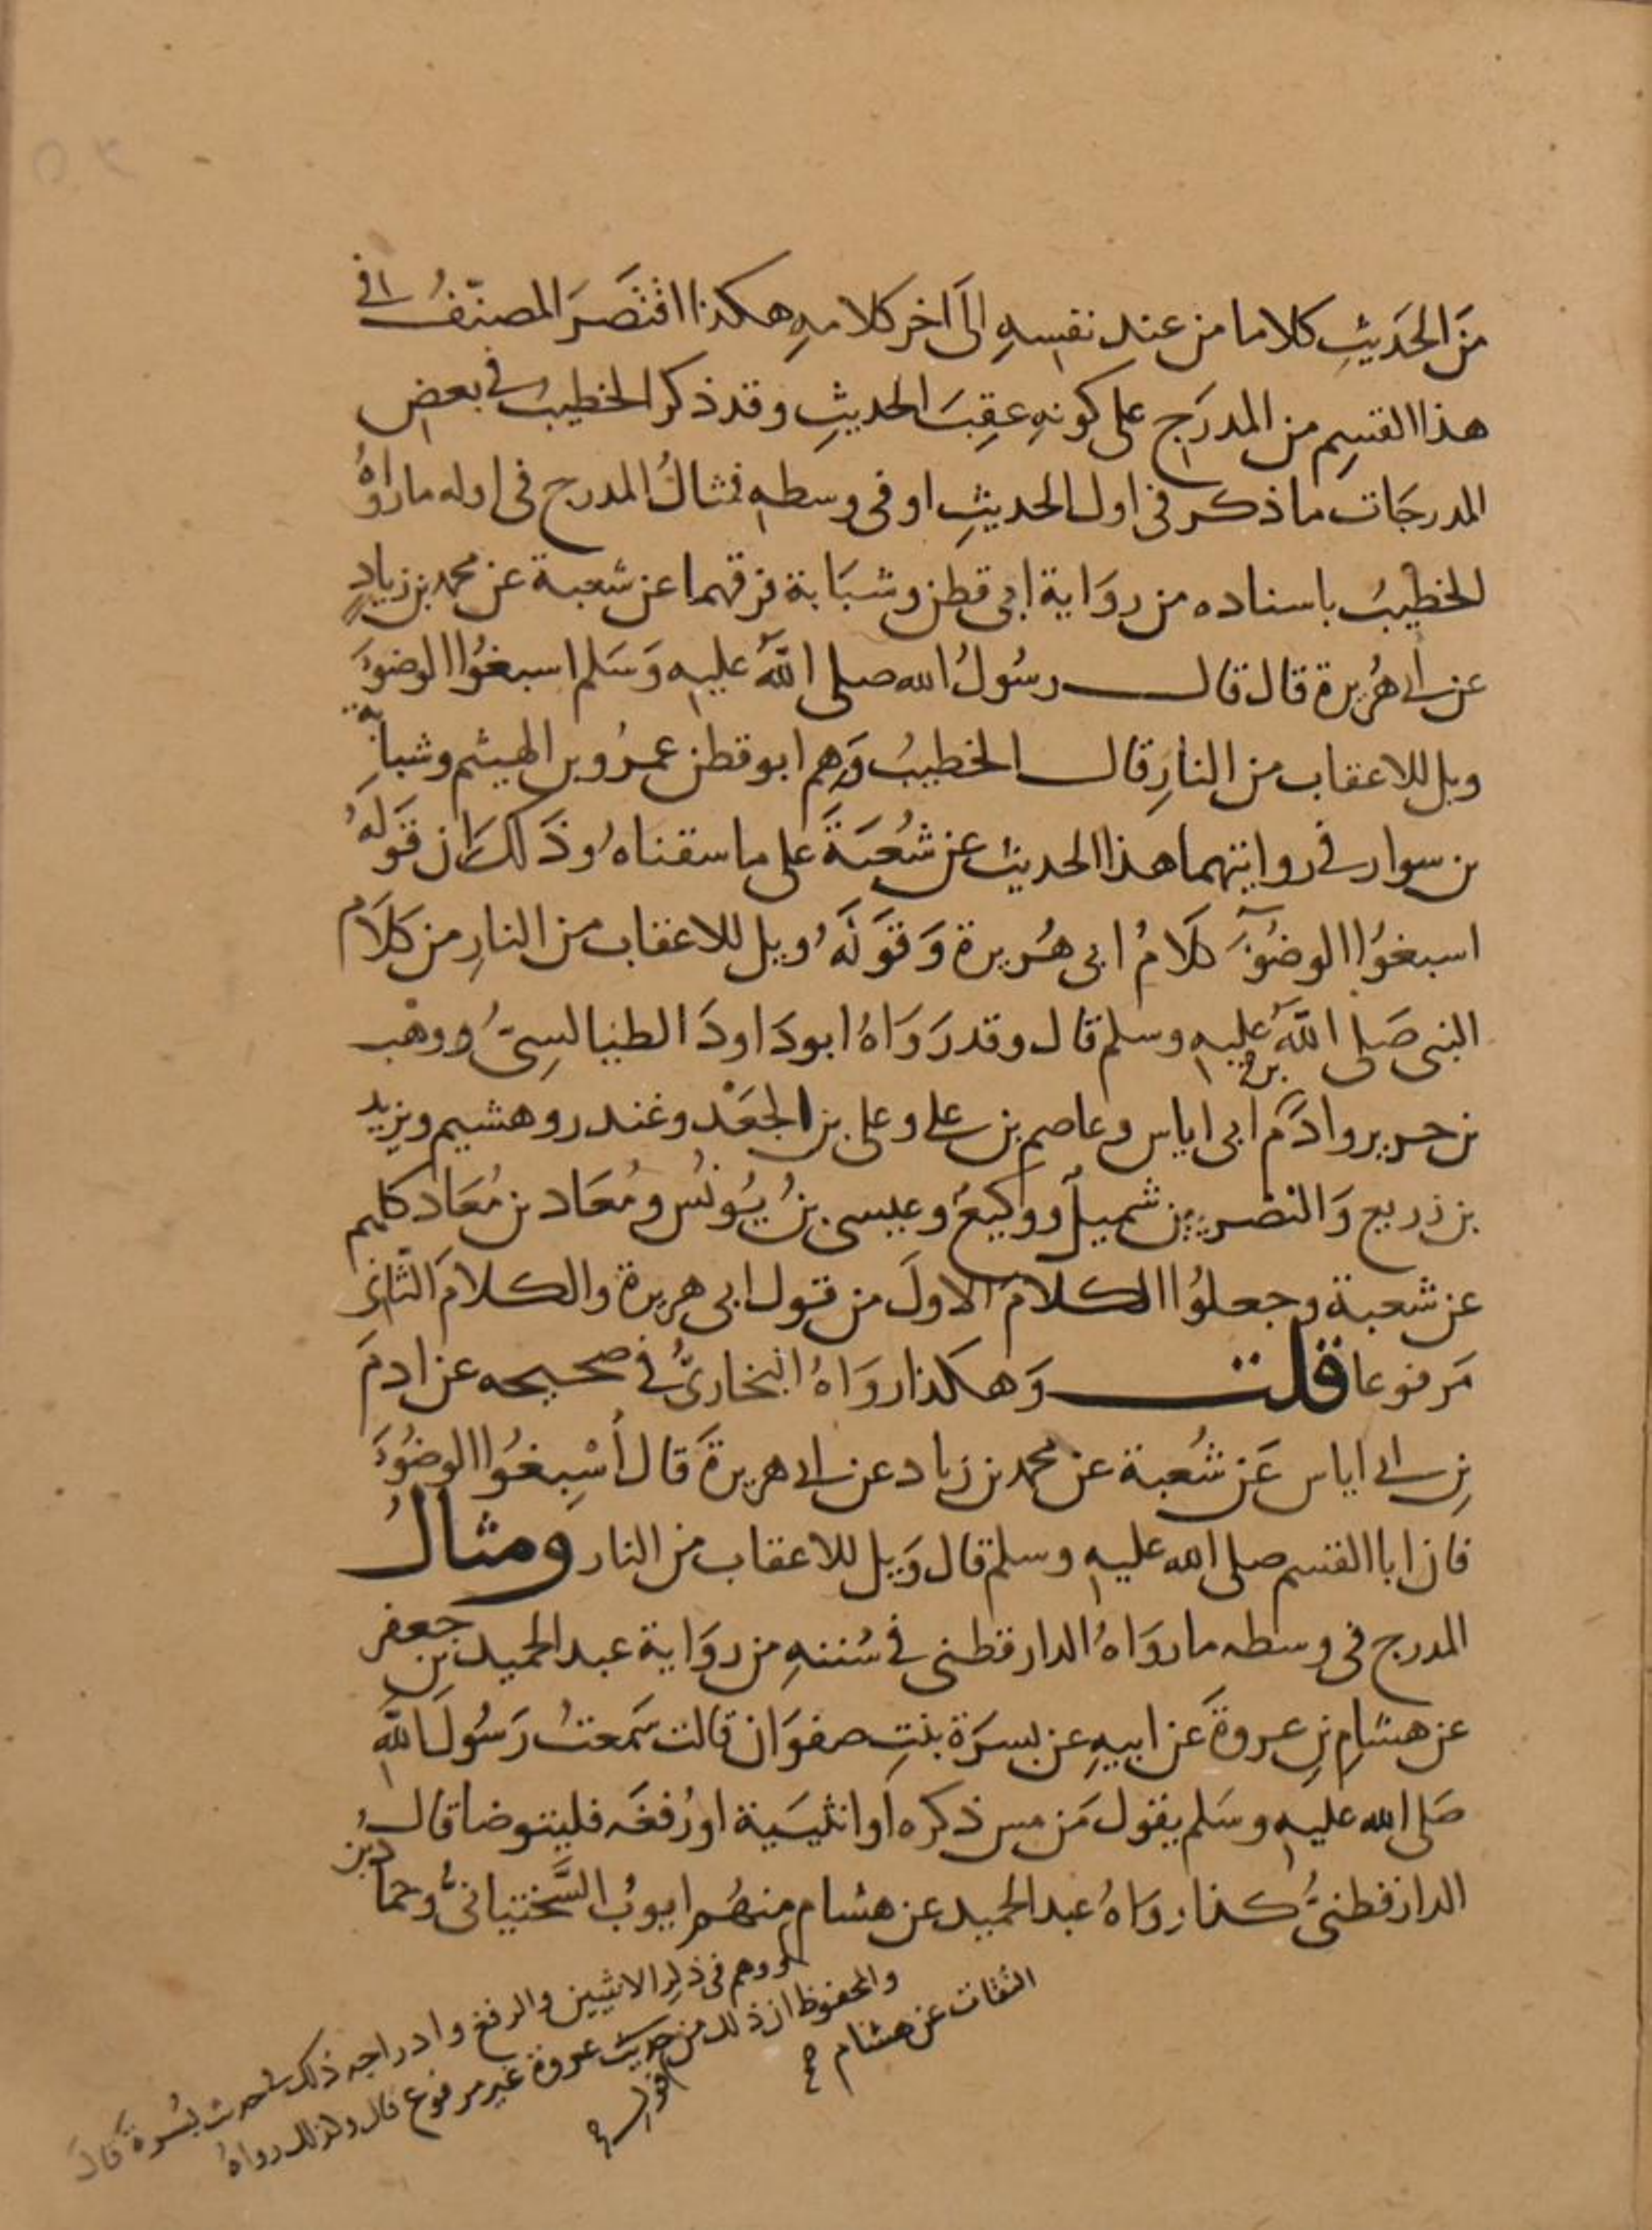 مَن الحَدِيثِ كلاما من عندِ نفسِهِ الَى اخر كلامهِ هكذا اقتَصَرَ المصنّفُ في
هذا القسِم من المدرَج على كونهِ عقِبَ الحديثِ وقد ذكر الخطيبُ في بعض
المدرجَات ما ذكر في اول الحديثِ او في وسطهِ فمثالُ المدرج في اوله ما رواهُ
الخطيبُ باسناده من روَاية ابي قطن وشبَابة فرقهما عن شعبة عن محمد بن زيادٍ
عن ابي هُريرة قال قال رسُولُ الله صلى اللهُ عليه وَسَلم اسبغُوا الوضوَ
ويل للاعقاب من النارِ قال الخطيبُ وَهِم ابو قطن عمرُو بن الهيثم وشبابة
بن سوار في روايتهما هذا الحديث عن شُعبَةَ على ما سقناهُ وذَلكَ ان قَولَهُ
اسبغُوا الوضُوَ كلَامُ ابي هُريرة وَقَولَهُ ويل للاعقاب من النارِ من كلَام
النبي صَلى اللهُ عليهِ وسلم قال وقد رَوَاهُ ابو دَاودَ الطيالسِيُّ ووهْب
بن جرير وادَم بن ابي اياس وعاصم بن علي وعلي بن الجعَدْ وغندر وهشيم ويزيد
بن زريع وَالنضر بن شميل ووكيعُ وعيسى بنُ يُونُس ومُعَاد بن مُعَاد كلهم
عن شعبة وجعلُوا الكلامَ الاولَ من قول ابي هريرة والكلامَ الثاني
مَرفوعا قلت وَهكذا روَاهُ البخاريُّ في صحيحه عن ادمَ
بنِ ابي اياس عَن شُعبة عن محمد بن زياد عن ابي هريرةَ قال أسْبِغُوا الوضُوَ
فان ابا القسم صلى الله عليهِ وسلم قال وَيل للاعقاب من النار ومثالُ
المدرج في وسطه ما روَاهُ الدارقطني في سُننهِ من روَاية عبد الحميد بن جعفر
عن هشامِ بنِ عروةَ عَن ابيهِ عن بسرَة بنتِ صفوَان قالت سَمعتُ رَسُولَ اللهِ
صَلى الله عليهِ وسَلم يقول مَن مس ذكره او انثيَية او رُفغَه فليتوضا قال
الدارقطنيُّ كذا روَاهُ عبد الحميد عن هشام منهُم ايوبُ السَّختيانيُّ وحمادُ بن
ووهم في ذكر الانثيين والرفغ وادراجه ذلك في حديث بُسرة قالَ
والمحفوظ ان ذلك من قول عروة غير مرفوع قال وكذلك رواهُ
الثقات عن هشام